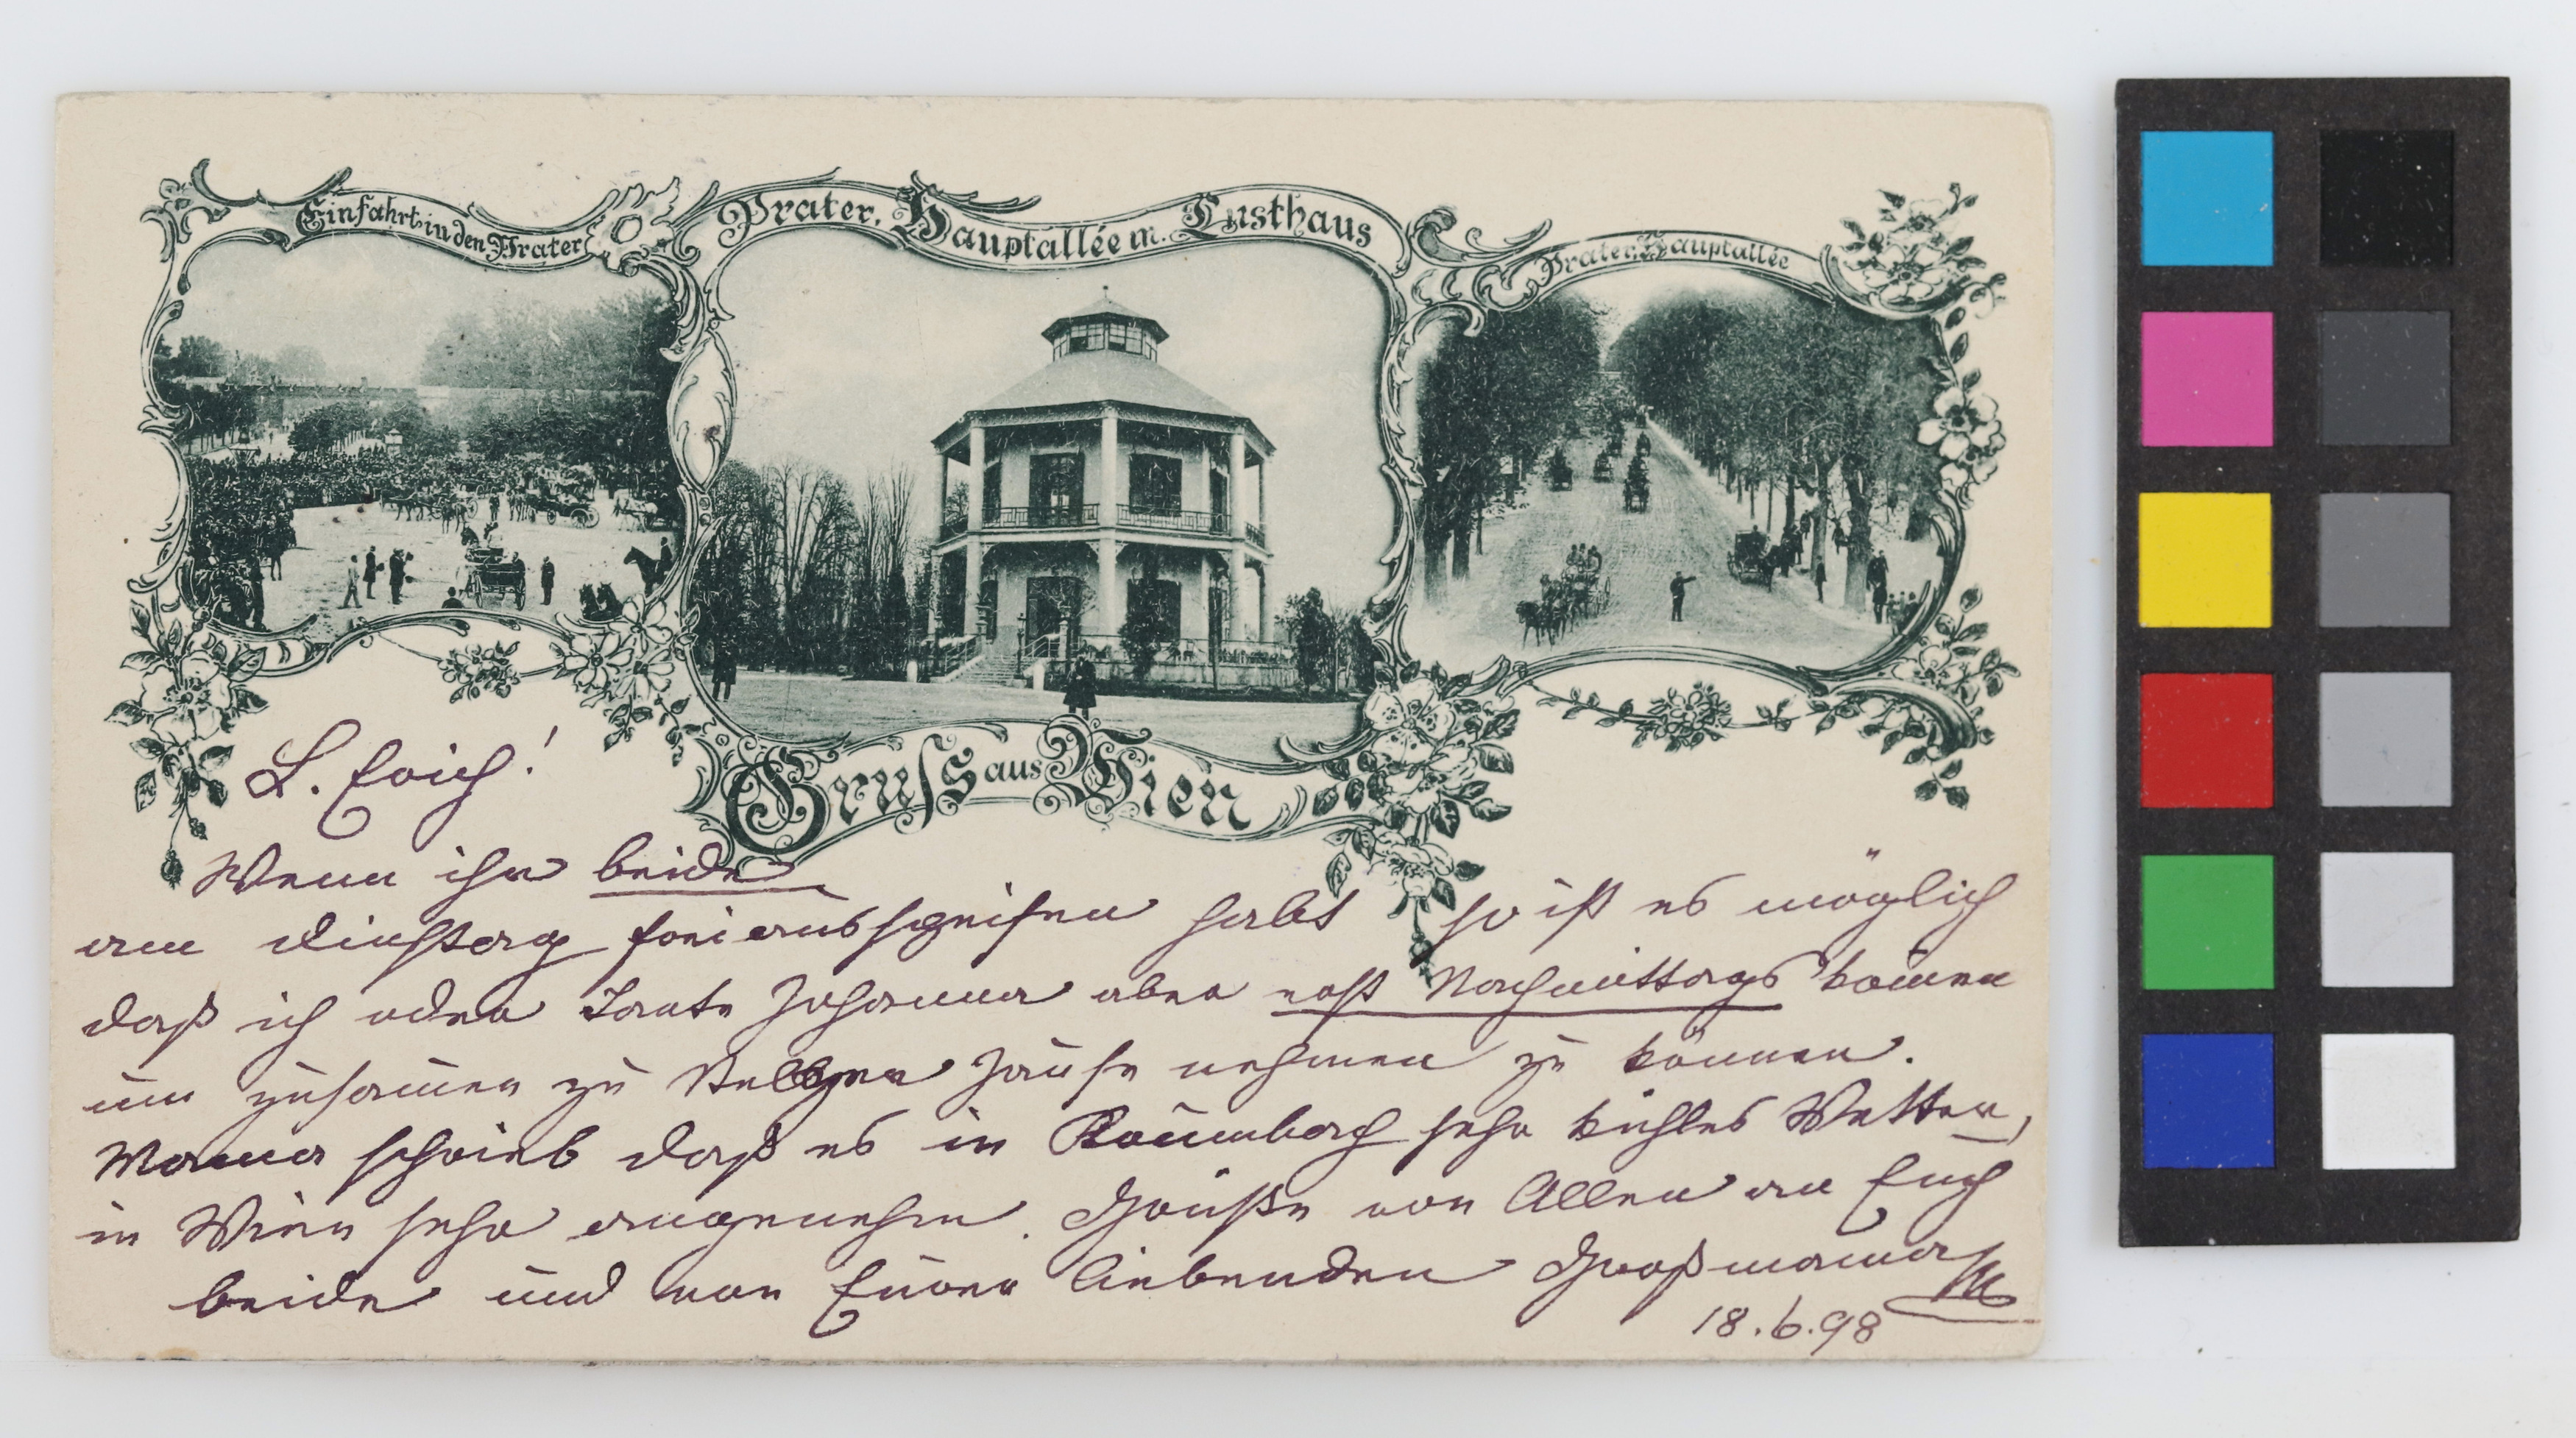 Einfahrt in den Prater
Prater, Hauptallée m. Lusthaus
Prater, Hauptallée
Gruss aus Wien
L. Erich!
Wenn ihr beide
am Dinstag frei ausspeisen habt so ist es möglich
daß ich oder Tante Johanna aber erst Nachmittags kom̄en
um zusam̄en zu Jause nehmen zu können.
Mama schrieb daß es in sehr kühles Wetter,
in Wien sehr angenehm. Grüße von Allen an Euch
beide und von Eurer liebenden Großmama M
18.6.98